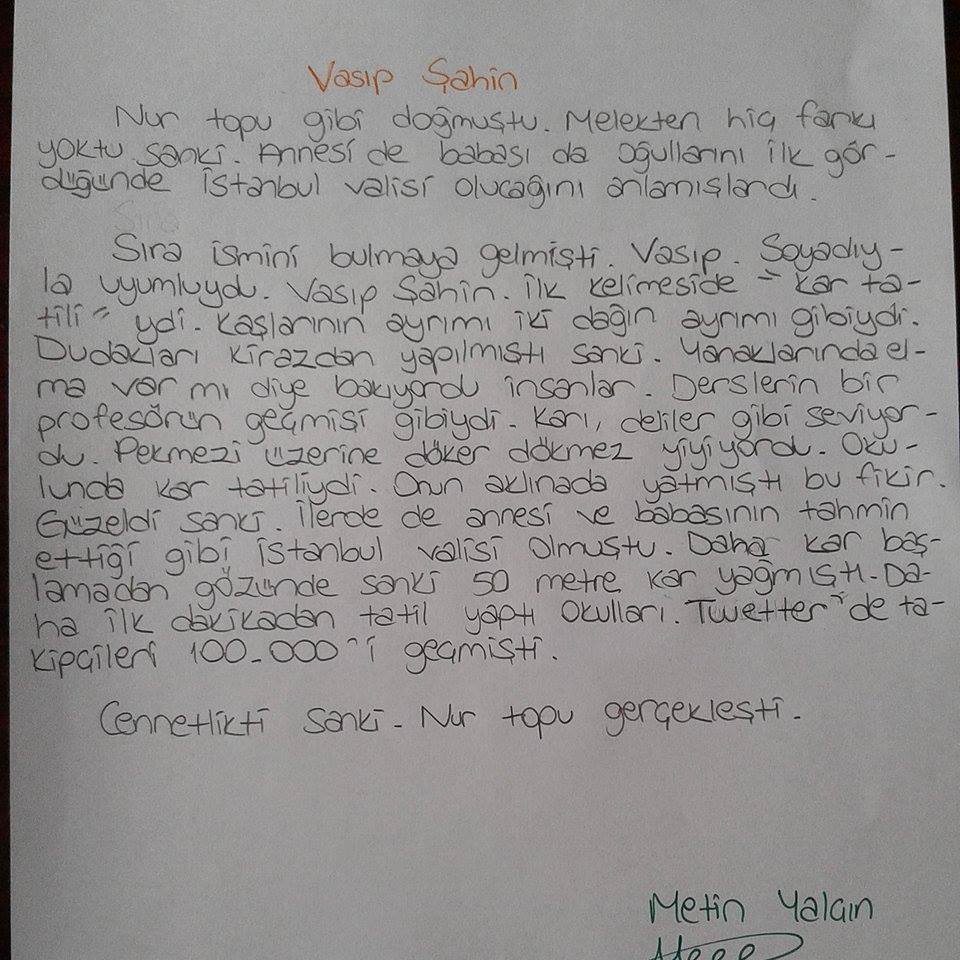 Vasıp Şahin
Nur topu gibi doğmuştu. Melekten hiç farkı
yoktu sanki. Annesi de babası da oğullarını ilk gör-
düğünde İstanbul valisi olucağını anlamışlardı.
Sıra
Sıra ismini bulmaya gelmişti. Vasıp. Soyadıy-
la uyumluydu. Vasıp Şahin. İlk kelimeside "kar ta-
tili" ydi. Kaşlarının ayrımı iki dağın ayrımı gibiydi.
Dudakları kirazdan yapılmıştı sanki. Yanaklarında el-
ma var mı diye bakıyordu insanlar. Derslerin bir
profesörün geçmişi gibiydi. Karı, deliler gibi seviyor-
du. Pekmezi üzerine döker dökmez yiyiyordu. Oku-
lunda kar tatiliydi. Onun aklınada yatmıştı bu fikir.
Güzeldi sanki. İlerde de annesi ve babasının tahmin
ettiği gibi İstanbul valisi olmuştu. Daha kar baş-
lamadan gözünde sanki 50 metre kar yağmıştı. Da-
ha ilk dakikadan tatil yaptı okulları. Twetter'de ta-
kipçileri 100.000'i geçmişti.
Cennetlikti sanki. Nur topu gerçekleşti.
Metin Yalçın